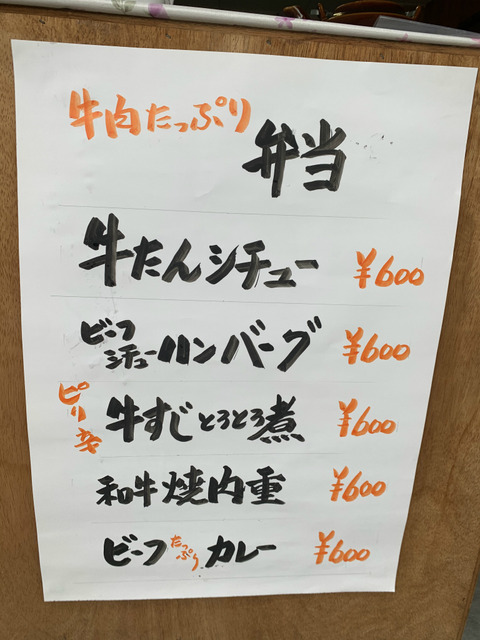 牛肉たっぷり
弁当
牛たんシチュー ¥600
ビーフシチューハンバーグ ¥600
ピリ辛 牛すじとろとろ煮 ¥600
和牛焼肉重 ¥600
ビーフたっぷりカレー ¥600